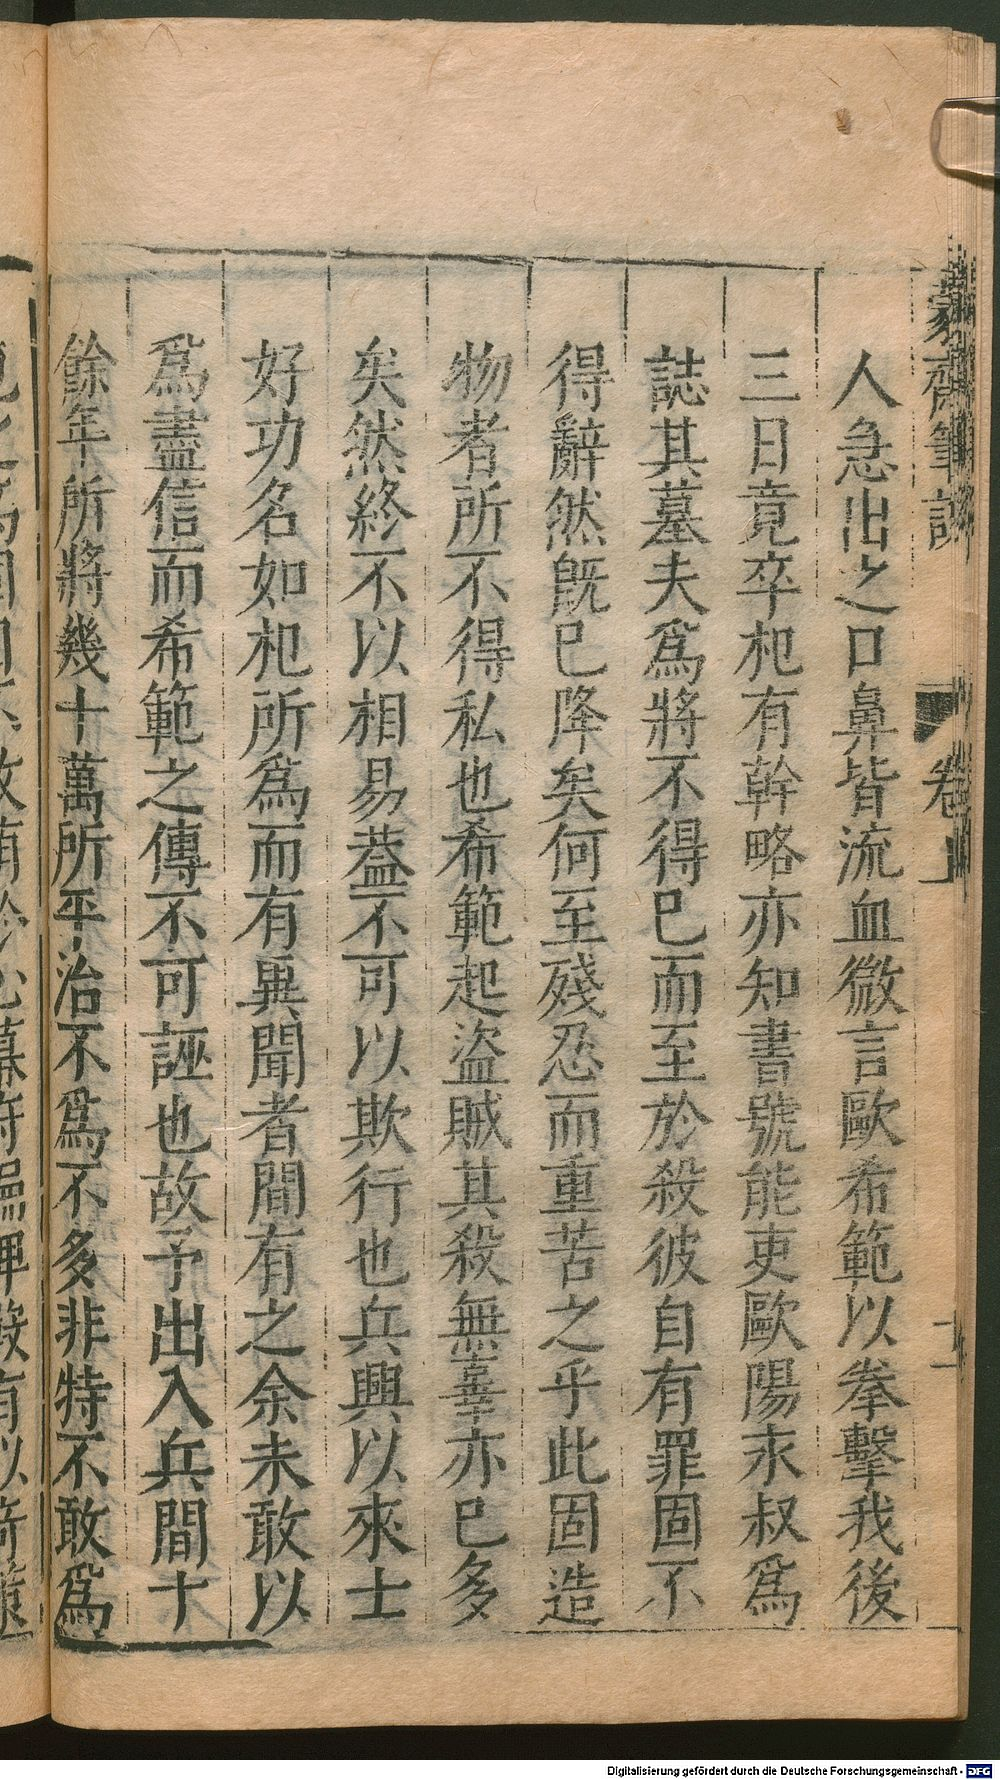 人急出之口鼻皆流血微言歐希範以拳擊我後
三日竟卒杞有幹略亦知書號能吏歐陽永叔爲
誌其墓夫爲將不得已而至於殺彼自有罪固不
得辭然旣已降矣何至殘忍而重苦之乎此固造
物者所不得私也希範起盜賊其殺無辜亦已多
矣然終不以相易葢不可以欺行也兵興以來士
好功名如杞所爲而有異聞者間有之余未敢以
爲盡信而希範之傳不可誣也故予出入兵間十
餘年所將幾十萬所平治不爲不多非特不敢爲
Digitalisierung gefördert durch die Deutsche Forschungsgemeinschaft - DFG